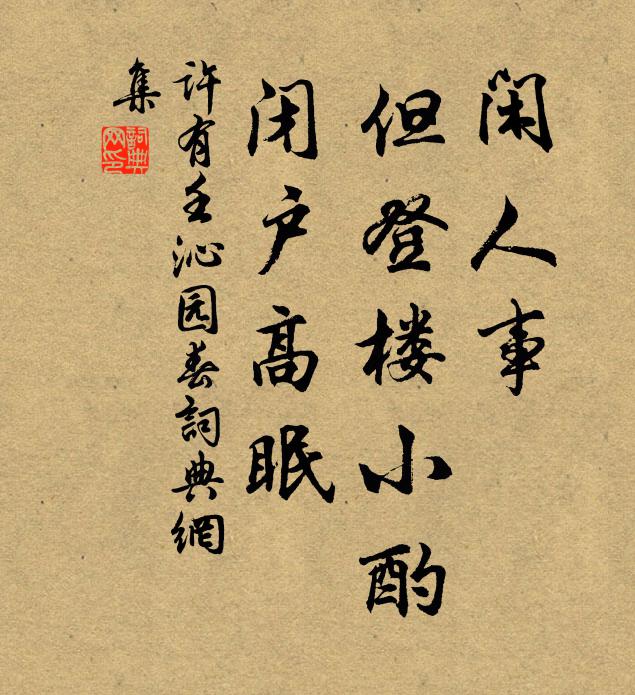 闲人事
但登楼小酌
闭户高眠
许有壬沁园春詞典網
集
詞典网印